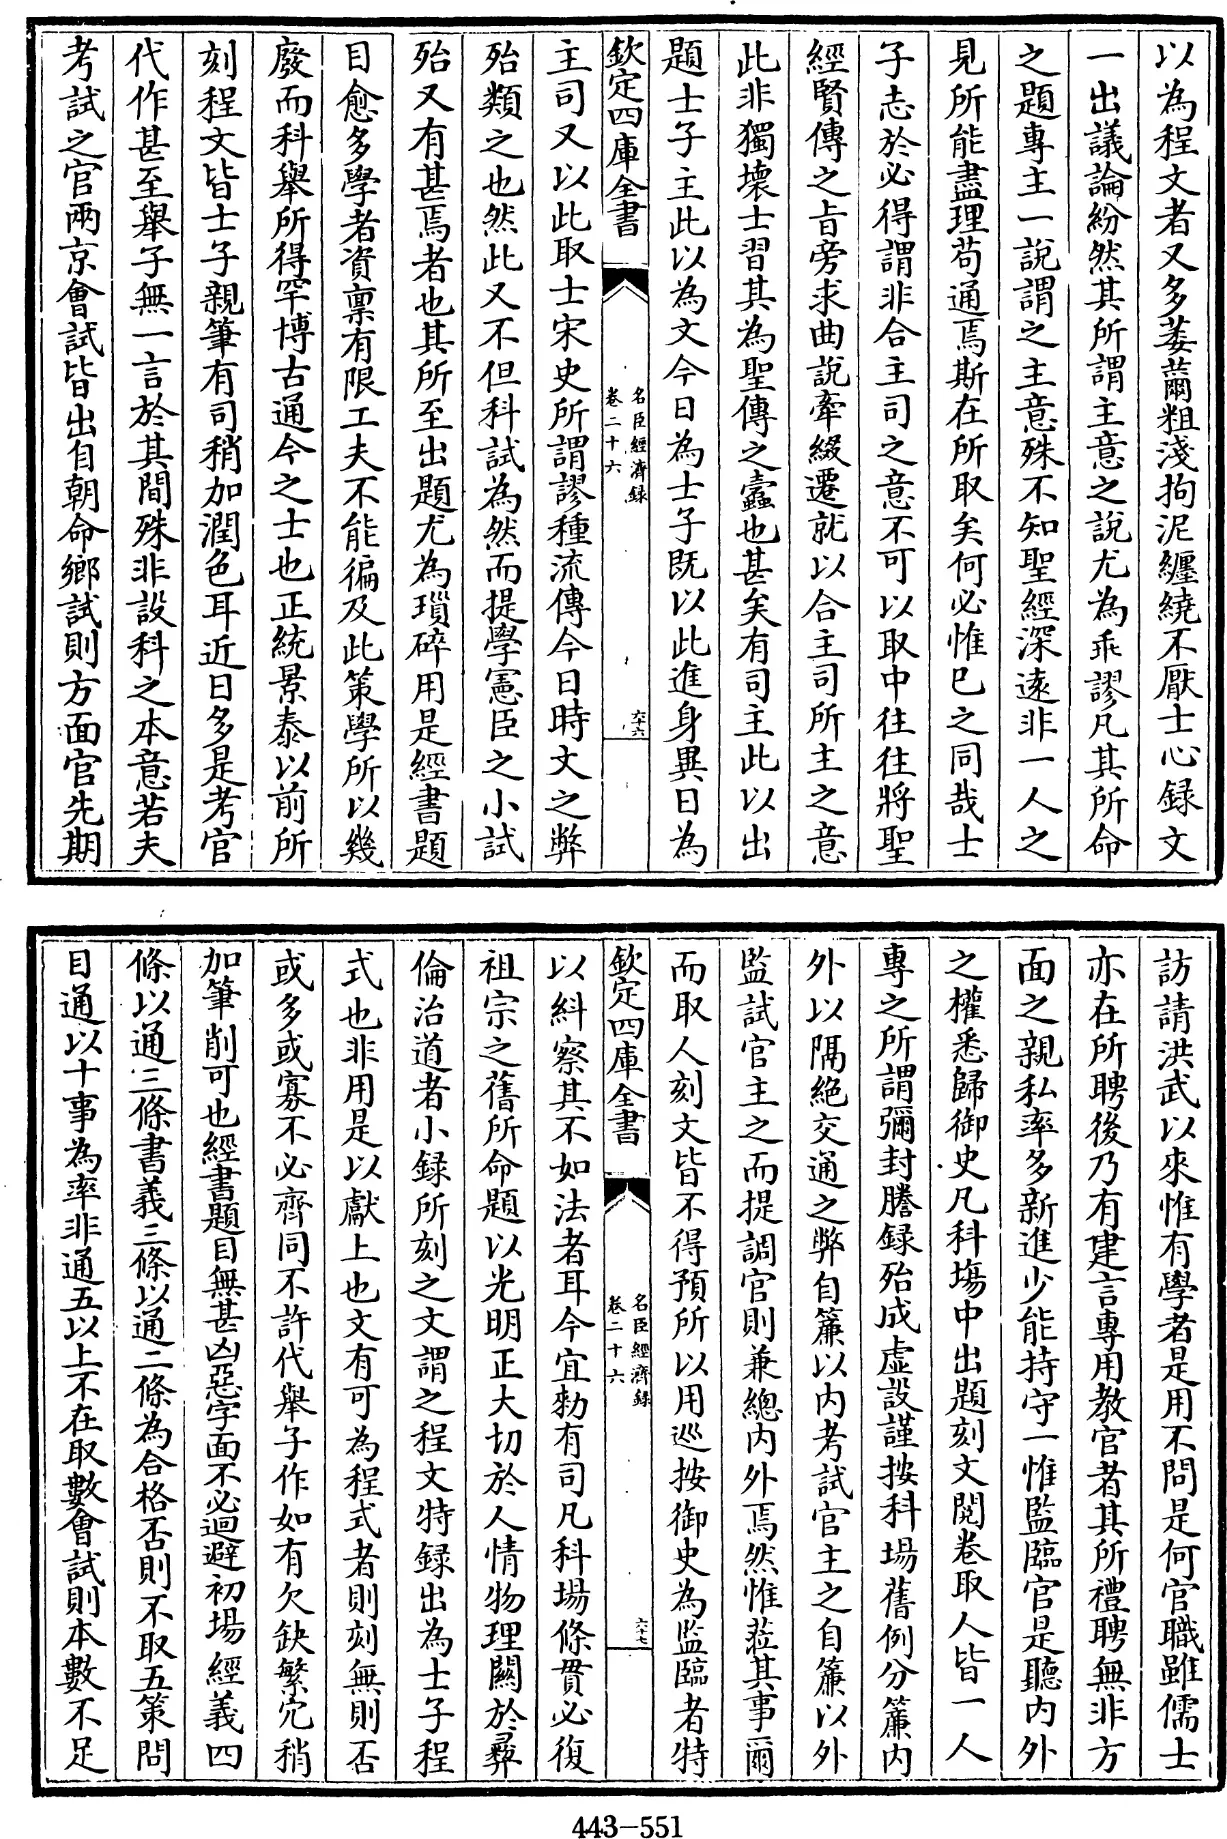 以為程文者又多萎薾粗淺拘泥纏繞不厭士心録文
一出議論紛然其所謂主意之說尤為乖謬凡其所命
之題專主一說謂之主意殊不知聖經深遠非一人之
見所能盡理苟通焉斯在所取矣何必惟已之同哉士
子志於必得謂非合主司之意不可以取中往往將聖
經賢傳之旨旁求曲說牽綴遷就以合主司所主之意
此非獨壞士習其為聖傳之蠧也甚矣有司主此以出
題士子主此以為文今日為士子既以此進身異日為
欽定四庫全書
名臣經濟録
卷二十六
六十六
主司又以此取士宋史所謂謬種流傳今日時文之弊
殆類之也然此又不但科試為然而提學憲臣之小試
殆又有甚焉者也其所至出題尤為瑣碎用是經書題
目愈多學者資禀有限工夫不能徧及此策學所以幾
廢而科舉所得罕博古通今之士也正統景泰以前所
刻程文皆士子親筆有司稍加潤色耳近日多是考官
代作甚至舉子無一言於其間殊非設科之本意若夫
考試之官兩京會試皆出自朝命鄉試則方面官先期
訪請洪武以來惟有學者是用不問是何官職雖儒士
亦在所聘後乃有建言專用教官者其所禮聘無非方
面之親私率多新進少能持守一惟監臨官是聽内外
之權悉歸御史凡科塲中出題刻文閱卷取人皆一人
專之所謂彌封謄録殆成虚設謹按科場舊例分簾内
外以隔絶交通之弊自簾以内考試官主之自簾以外
監試官主之而提調官則兼總内外焉然惟蒞其事爾
而取人刻文皆不得預所以用巡按御史為監臨者特
欽定四庫全書
名臣經濟録
卷二十六
六十七
以糾察其不如法者耳今宜勑有司凡科場條貫必復
祖宗之舊所命題以光明正大切於人情物理關於彞
倫治道者小録所刻之文謂之程文特録出為士子程
式也非用是以獻上也文有可為程式者則刻無則否
或多或寡不必齊同不許代舉子作如有欠缺繁冗稍
加筆削可也經書題目無甚凶惡字面不必迴避初場經義四
條以通三條書義三條以通二條為合格否則不取五策問
目通以十事為率非通五以上不在取數會試則本數不足
443-551